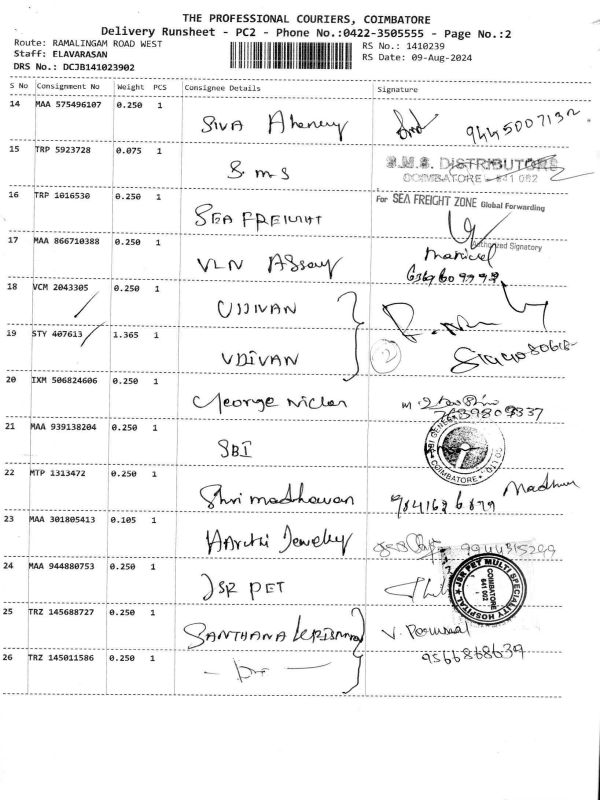 THE PROFESSIONAL COURIERS, COIMBATORE
Delivery Runsheet - PC2 - Phone No.:0422-3505555 - Page No.:2
Route: RAMALINGAM ROAD WEST
Staff: ELAVARASAN
DRS No.: DCJB141023902
RS No.: 1410239
RS Date: 09-Aug-2024
S No Consignment No Weight PCS Consignee Details Signature
14 MAA 575496107 0.250 1 SIVA 9445007132
15 TRP 5923728 0.075 1 S.M.S S.M.S. DISTRIBUTORS
COIMBATORE - 641 002
16 TRP 1016530 0.250 1 SEA FREIGHT For SEA FREIGHT ZONE Global Forwarding
Authorized Signatory
17 MAA 866710388 0.250 1 VLN Assay
18 VCM 2043305 0.250 1 UJJIVAN
19 STY 407613 1.365 1 2
20 IXM 506824606 0.250 1 George
21 MAA 939138204 0.250 1 SBI COIMBATORE
22 MTP 1313472 0.250 1 Shri madhavan Madhun
23 MAA 301805413 0.105 1 Jewelry 9944315299
24 MAA 944880753 0.250 1 JSR PET JSR PET MULTI SPECIALITY HOSPITAL
COIMBATORE
641 002
25 TRZ 145688727 0.250 1 SANTHANA KRISHNA V. Perumal
9566868639
26 TRZ 145011586 0.250 1